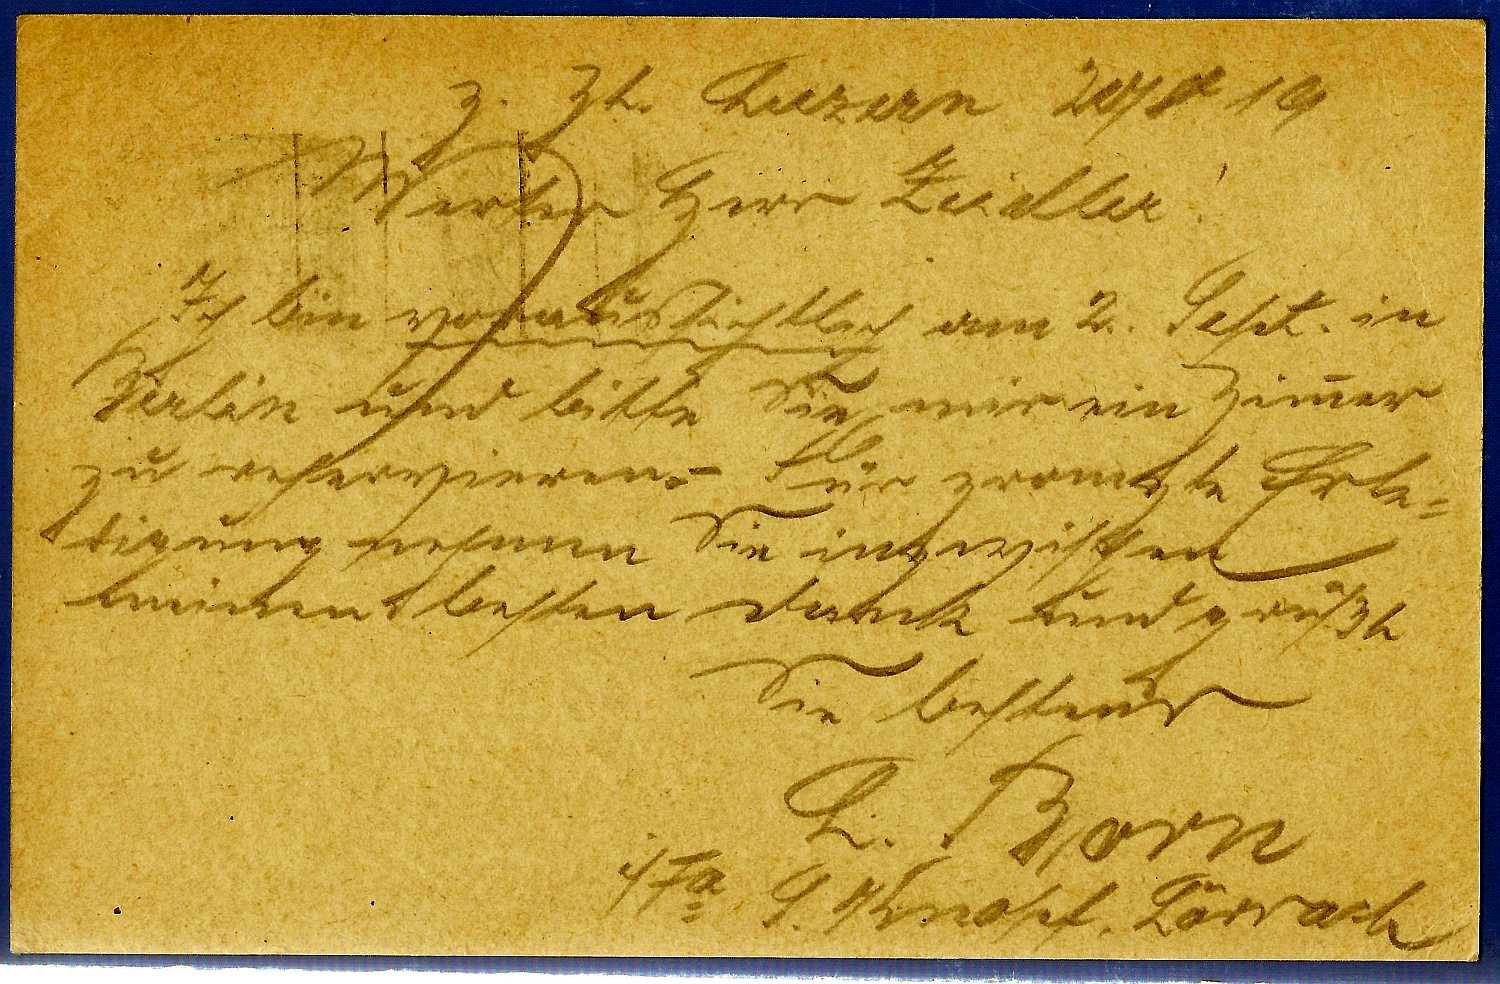 z. Zt. Luzern 20/8 19
Werter Herr Zeidler!
Ich bin voraussichtlich am 2. Sept. in
Berlin und bitte Sie mir ein Zimmer
zu reservieren. – Für prompte Erle=
digung nehmen Sie inzwischen
meinen besten Dank und grüßt
Sie bestens
L. Born
i/Fa S. Knopf, Lörrach